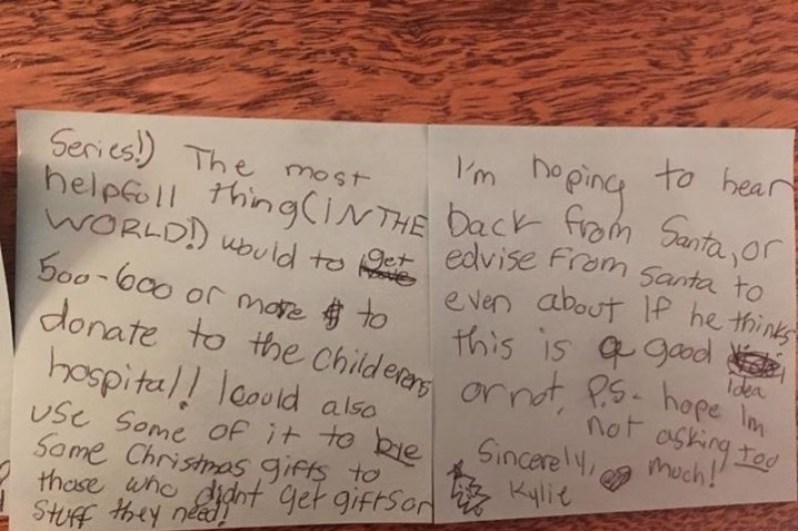 Series!) The most
helpfoll thing(IN THE
WORLD!) would to get
500-600 or more $ to
donate to the childerens
hospital! I could also
use some of it to bye
some Christmas gifts to
those who didnt get gifts or
stuff they need!
I'm hoping to hear
back from Santa, or
edvise From Santa to
even about If he thinks
this is a good
idea
or not. P.S. hope Im
not asking too
much!
Sincerely,
Kylie